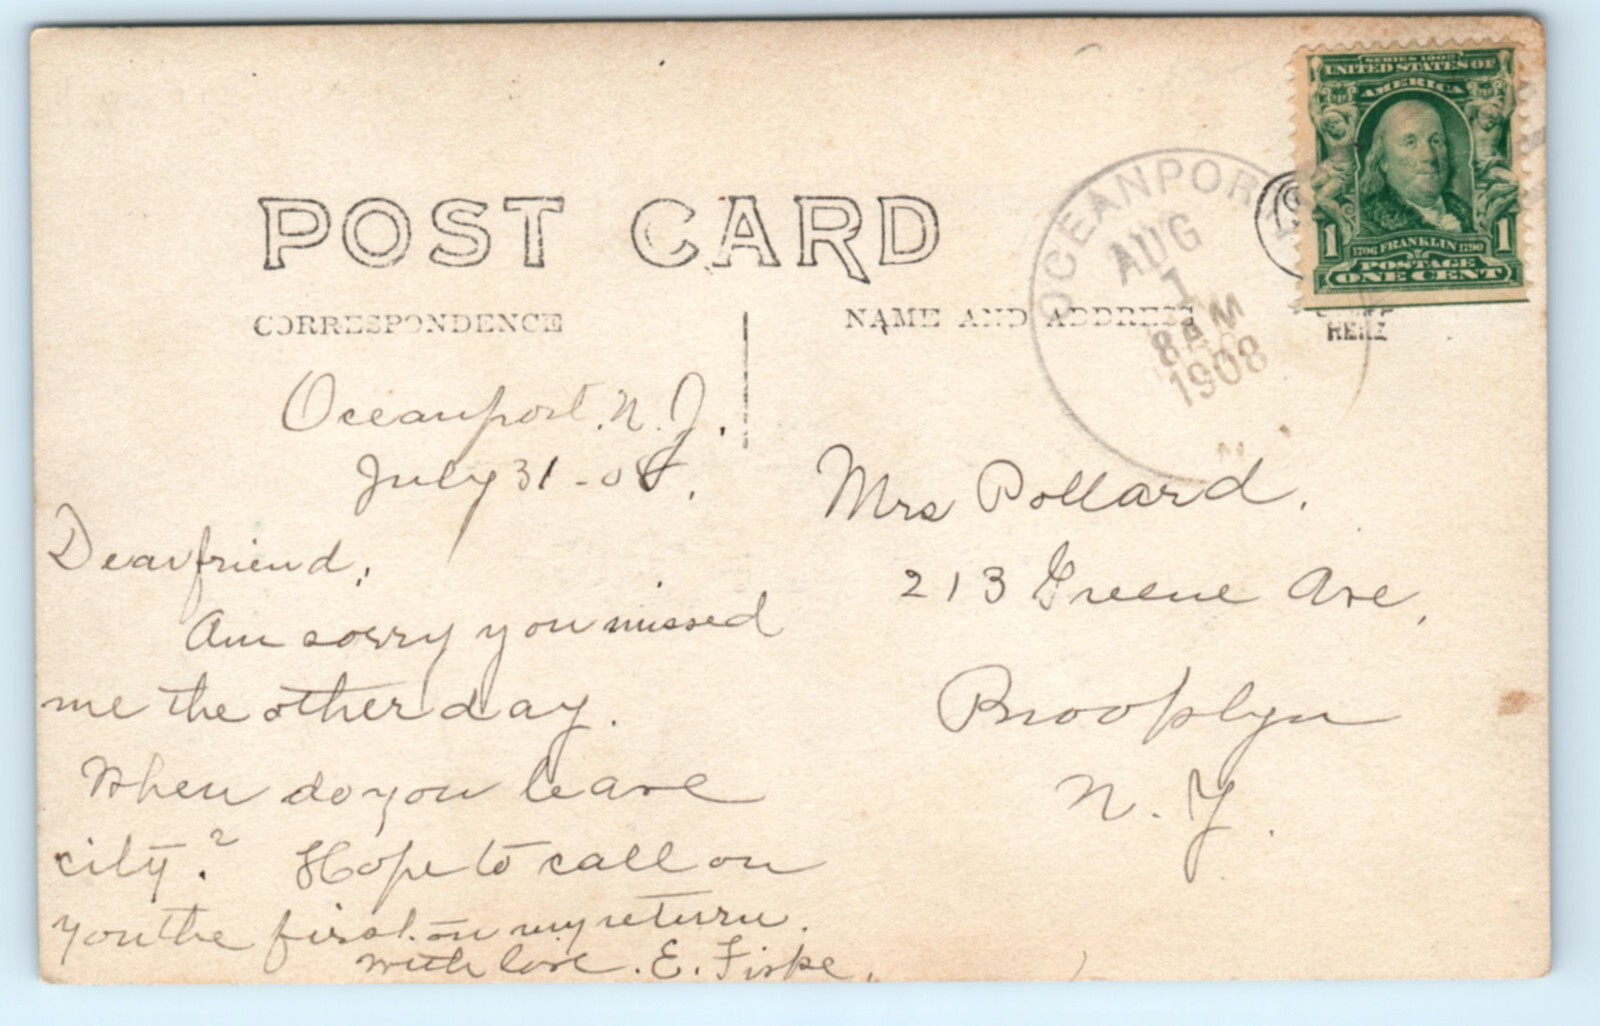 POST CARD
CORRESPONDENCE
NAME AND ADDRESS
HERE
SERIES 1902
UNITED STATES OF
AMERICA
1706 FRANKLIN 1790
1 1
POSTAGE
ONE CENT
OCEANPORT
AUG
1
8 AM
1908
N
Oceanport. N. J.
July 31 - 08.
Dear friend;
Am sorry you missed
me the other day.
When do you leave
city? Hope to call on
you the first on my return.
with love. E. Fiske.
Mrs Pollard.
213 Greene Ave,
Brooklyn
N. Y.